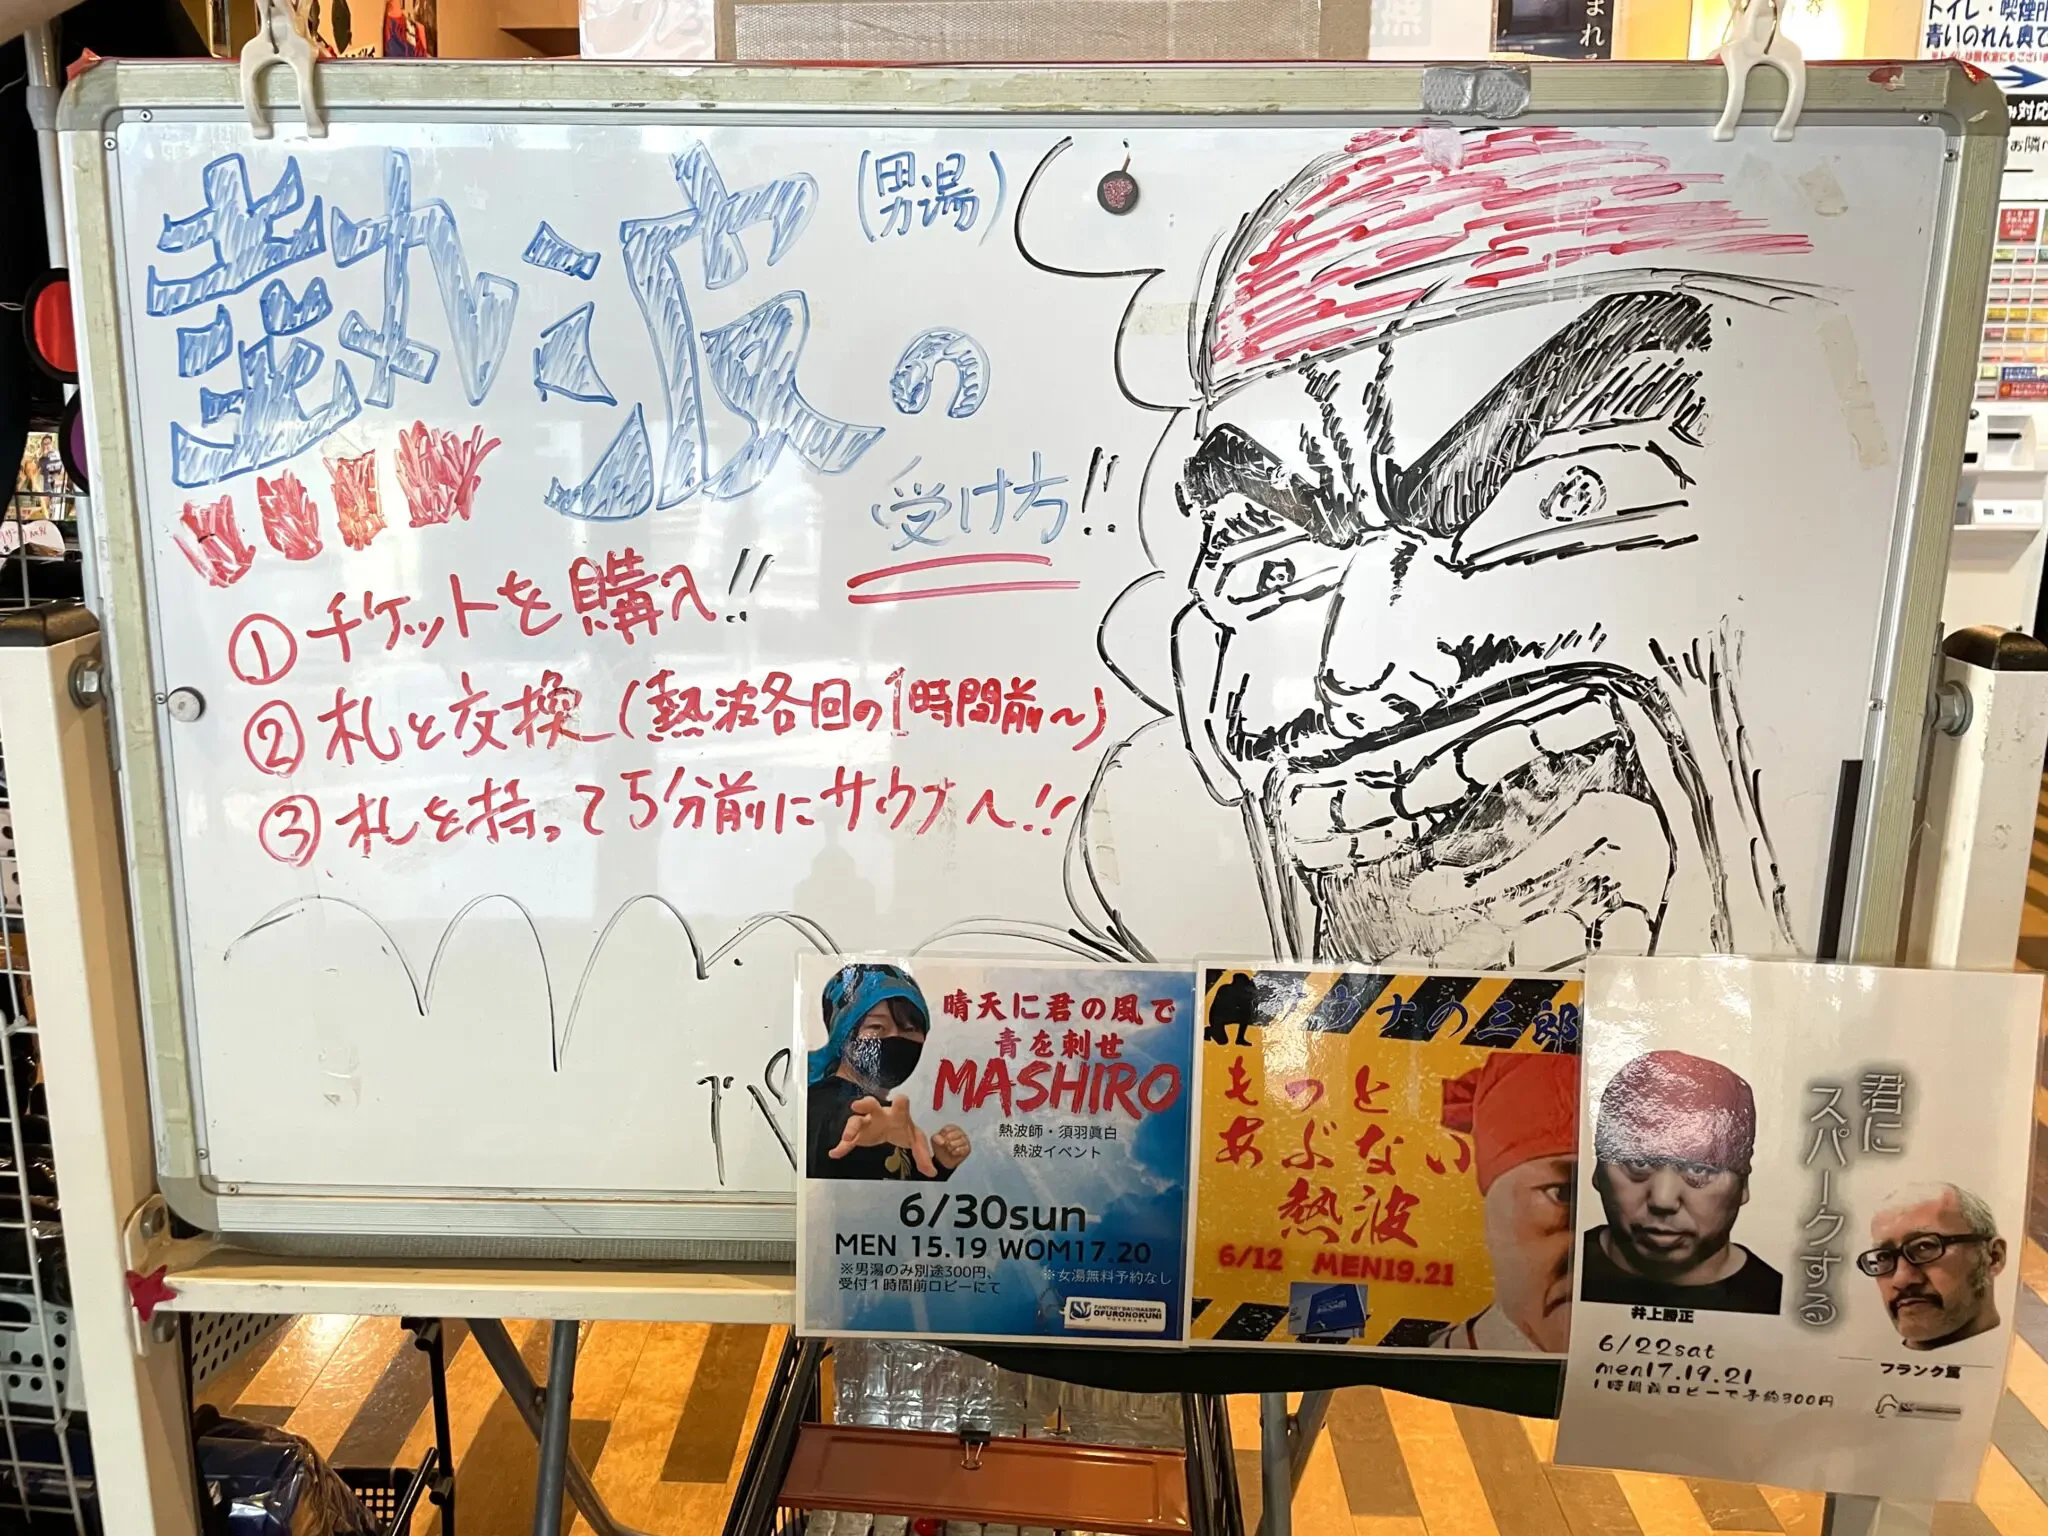 熱波の
(男湯)
受け方!!
①チケットを購入!!
②札と交換(熱波各回の1時間前〜)
③札を持って5分前にサウナへ!!
晴天に君の風で
青を刺せ
MASHIRO
熱波師・須羽眞白
熱波イベント
6/30sun
MEN 15.19 WOM17.20
※男湯のみ別途300円、
受付1時間前ロビーにて
※女湯無料予約なし
FANTASY SAUNA&SPA
OFURONOKUNI
サウナの三郎
もっと
あぶない
熱波
6/12 MEN19.21
君に
スパークする
井上勝正
6/22sat
men17.19.21
1時間前ロビーで予約300円
フランク篤
トイレ・喫煙所
青いのれん奥で
まれ
対応
お隣へ